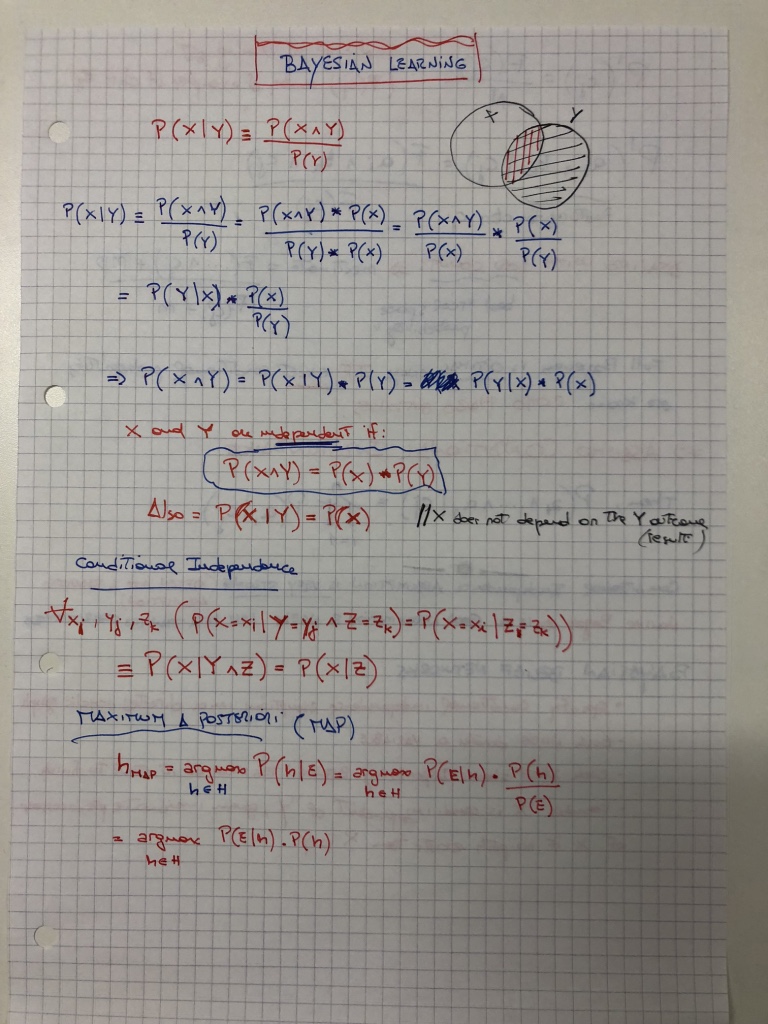 BAYESIAN LEARNING
P(X|Y) ≡ P(X∧Y) / P(Y)
X Y
P(X|Y) ≡ P(X∧Y) / P(Y) = P(X∧Y) * P(X) / P(Y) * P(X) = P(X∧Y) / P(X) * P(X) / P(Y)
= P(Y|X) * P(X) / P(Y)
⇒ P(X∧Y) = P(X|Y) * P(Y) = P(Y|X) * P(X)
X and Y are independent if:
P(X∧Y) = P(X) * P(Y)
Also = P(X|Y) = P(X) //X does not depend on the Y outcome
(result)
Conditional Independence
∀xi, yj, zk (P(X=xi|Y=yj ∧ Z=zk) = P(X=xi|Z=zk))
≡ P(X|Y∧Z) = P(X|Z)
MAXIMUM A POSTERIORI (MAP)
hMAP = argmax h∈H P(h|E) = argmax h∈H P(E|h) · P(h) / P(E)
= argmax h∈H P(E|h) . P(h)